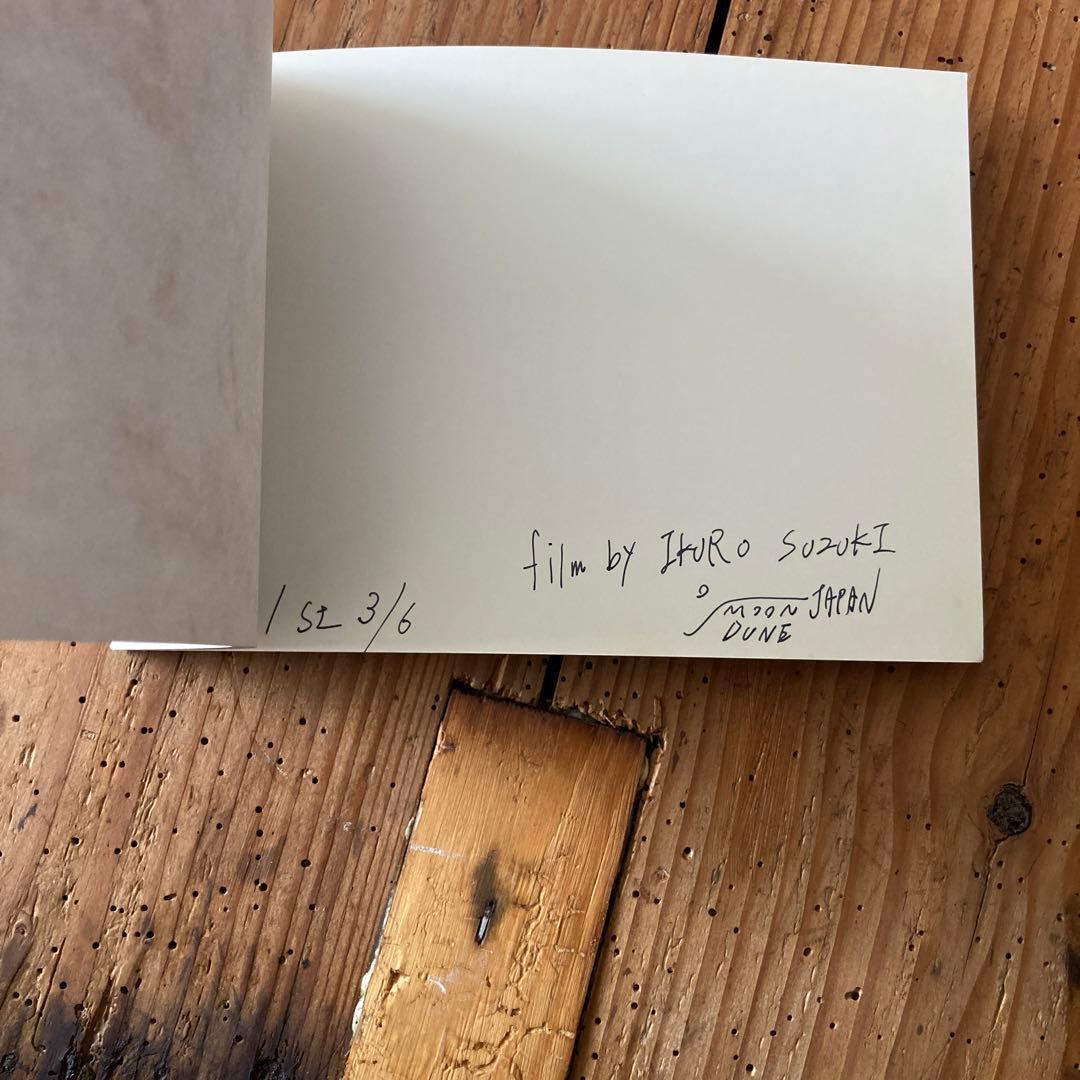 film by IKURO SUZUKI
MOON JAPAN
DUNE
1 st 3/6